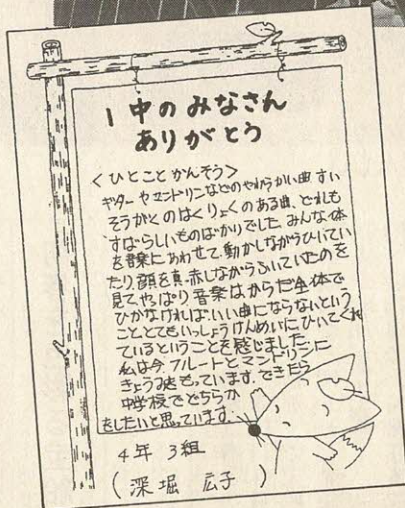 1中のみなさん
ありがとう
<ひとことかんそう>
ギターやマンドリンなどのやわらかい曲 すい
そうがくのはくりょくのある曲、どれも
すばらしいものばかりでした。みんな体
を音楽にあわせて、動かしながらひいてい
たり、顔を真赤しながらふいていたのを
見てやっぱり音楽はからだ全体で
ひかなければいい曲にならないという
こと、とてもいっしょうけんめいにひいてくれ
ているということを感じました。
私は今、フルートとマンドリンに
きょうみをもっています。できたら
中学校でどちらか
をしたいと思っています。
4年 3組
(深堀 広子)